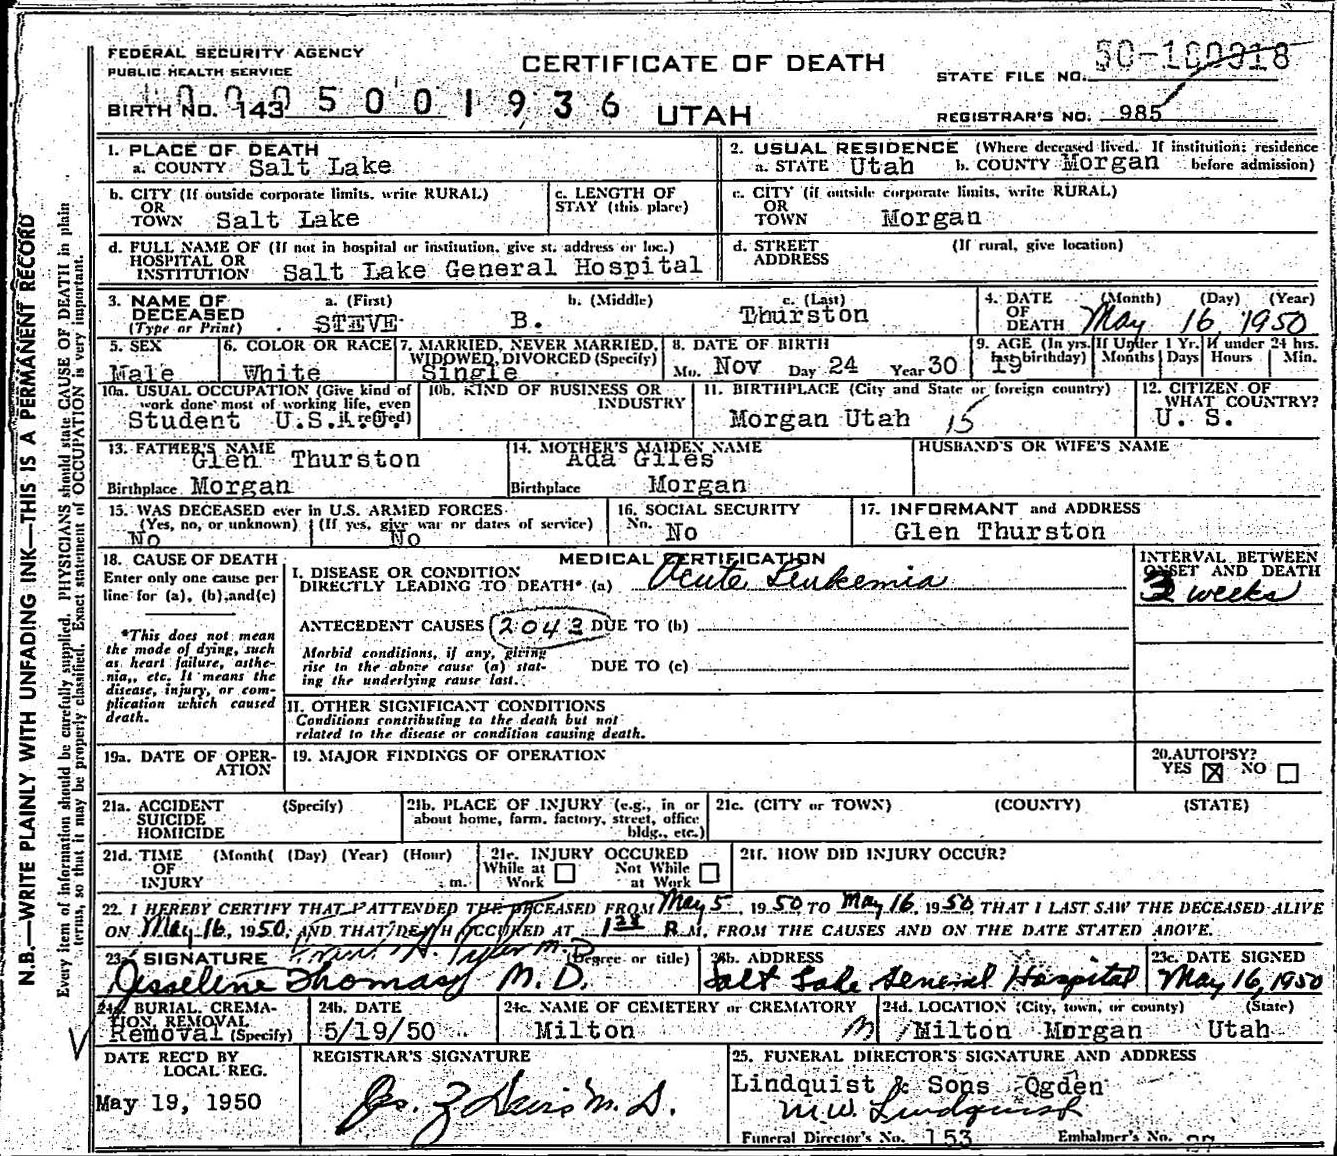 FEDERAL SECURITY AGENCY
PUBLIC HEALTH SERVICE
CERTIFICATE OF DEATH
STATE FILE NO.
BIRTH NO. 143
5 0 0 1 9 3 6
UTAH
REGISTRAR'S NO. 985
1. PLACE OF DEATH
a. COUNTY Salt Lake
2. USUAL RESIDENCE (Where deceased lived. If institution: residence before admission)
a. STATE Utah b. COUNTY Morgan
b. CITY (If outside corporate limits, write RURAL)
OR
TOWN Salt Lake
c. LENGTH OF
STAY (this place)
c. CITY (if outside corporate limits, write RURAL)
OR
TOWN Morgan
d. FULL NAME OF (If not in hospital or institution, give st. address or loc.)
HOSPITAL OR
INSTITUTION Salt Lake General Hospital
d. STREET (If rural, give location)
ADDRESS
3. NAME OF DECEASED
(Type or Print)
a. (First) b. (Middle) c. (Last)
STEVE B. Thurston
4. DATE OF DEATH (Month) (Day) (Year)
May 16, 1950
5. SEX
Male
6. COLOR OR RACE
White
7. MARRIED, NEVER MARRIED,
WIDOWED, DIVORCED (Specify)
Single
8. DATE OF BIRTH
Mo. Nov Day 24 Year 30
9. AGE (In yrs. last birthday) If Under 1 Yr. If under 24 hrs.
Months Days Hours Min.
19
10a. USUAL OCCUPATION (Give kind of
work done most of working life, even
if retired)
Student U.S.A.C.
10b. KIND OF BUSINESS OR
INDUSTRY
11. BIRTHPLACE (City and State or foreign country)
Morgan Utah 15
12. CITIZEN OF
WHAT COUNTRY?
U. S.
13. FATHER'S NAME
Glen Thurston
Birthplace Morgan
14. MOTHER'S MAIDEN NAME
Ada Giles
Birthplace Morgan
HUSBAND'S OR WIFE'S NAME
15. WAS DECEASED ever in U.S. ARMED FORCES
(Yes, no, or unknown) (If yes, give war or dates of service)
No No
16. SOCIAL SECURITY
No. No
17. INFORMANT and ADDRESS
Glen Thurston
18. CAUSE OF DEATH
Enter only one cause per
line for (a), (b), and(c)
*This does not mean
the mode of dying, such
as heart failure, asthe-
nia, etc. It means the
disease, injury, or com-
plication which caused
death.
MEDICAL CERTIFICATION
I. DISEASE OR CONDITION
DIRECTLY LEADING TO DEATH* (a) Acute Leukemia
ANTECEDENT CAUSES 2043 DUE TO (b)
Morbid conditions, if any, giving
rise to the above cause (a) stat-
ing the underlying cause last.
DUE TO (c)
INTERVAL BETWEEN
ONSET AND DEATH
weeks
II. OTHER SIGNIFICANT CONDITIONS
Conditions contributing to the death but not
related to the disease or condition causing death.
19a. DATE OF OPER-
ATION
19. MAJOR FINDINGS OF OPERATION
20. AUTOPSY?
YES ☒ NO ☐
21a. ACCIDENT (Specify)
SUICIDE
HOMICIDE
21b. PLACE OF INJURY (e.g., in or
about home, farm, factory, street, office
bldg., etc.)
21c. (CITY or TOWN) (COUNTY) (STATE)
21d. TIME (Month( (Day) (Year) (Hour)
OF
INJURY m.
21e. INJURY OCCURED
While at Work ☐ Not While at Work ☐
21f. HOW DID INJURY OCCUR?
22. I HEREBY CERTIFY THAT I ATTENDED THE DECEASED FROM May 5, 1950 TO May 16, 1950, THAT I LAST SAW THE DECEASED ALIVE
ON May 16, 1950, AND THAT DEATH OCCURED AT 1 38 P.M. FROM THE CAUSES AND ON THE DATE STATED ABOVE.
Frank H. Tyler M.D.
23a. SIGNATURE (Degree or title)
Thomas M.D.
23b. ADDRESS
Salt Lake General Hospital
23c. DATE SIGNED
May 16, 1950
24a. BURIAL, CREMA-
TION, REMOVAL
Removal (Specify)
24b. DATE
5/19/50
24c. NAME OF CEMETERY or CREMATORY
Milton
24d. LOCATION (City, town, or county) (State)
Milton Morgan Utah
DATE REC'D BY
LOCAL REG.
May 19, 1950
REGISTRAR'S SIGNATURE
M.D.
25. FUNERAL DIRECTOR'S SIGNATURE AND ADDRESS
Lindquist & Sons Ogden
M.W. Lindquist
Funeral Director's No. 153 Embalmer's No.
N.B.—WRITE PLAINLY WITH UNFADING INK—THIS IS A PERMANENT RECORD
Every item of information should be carefully supplied. PHYSICIANS should state CAUSE OF DEATH in plain
terms, so that it may be properly classified. Exact statement of OCCUPATION is very important.